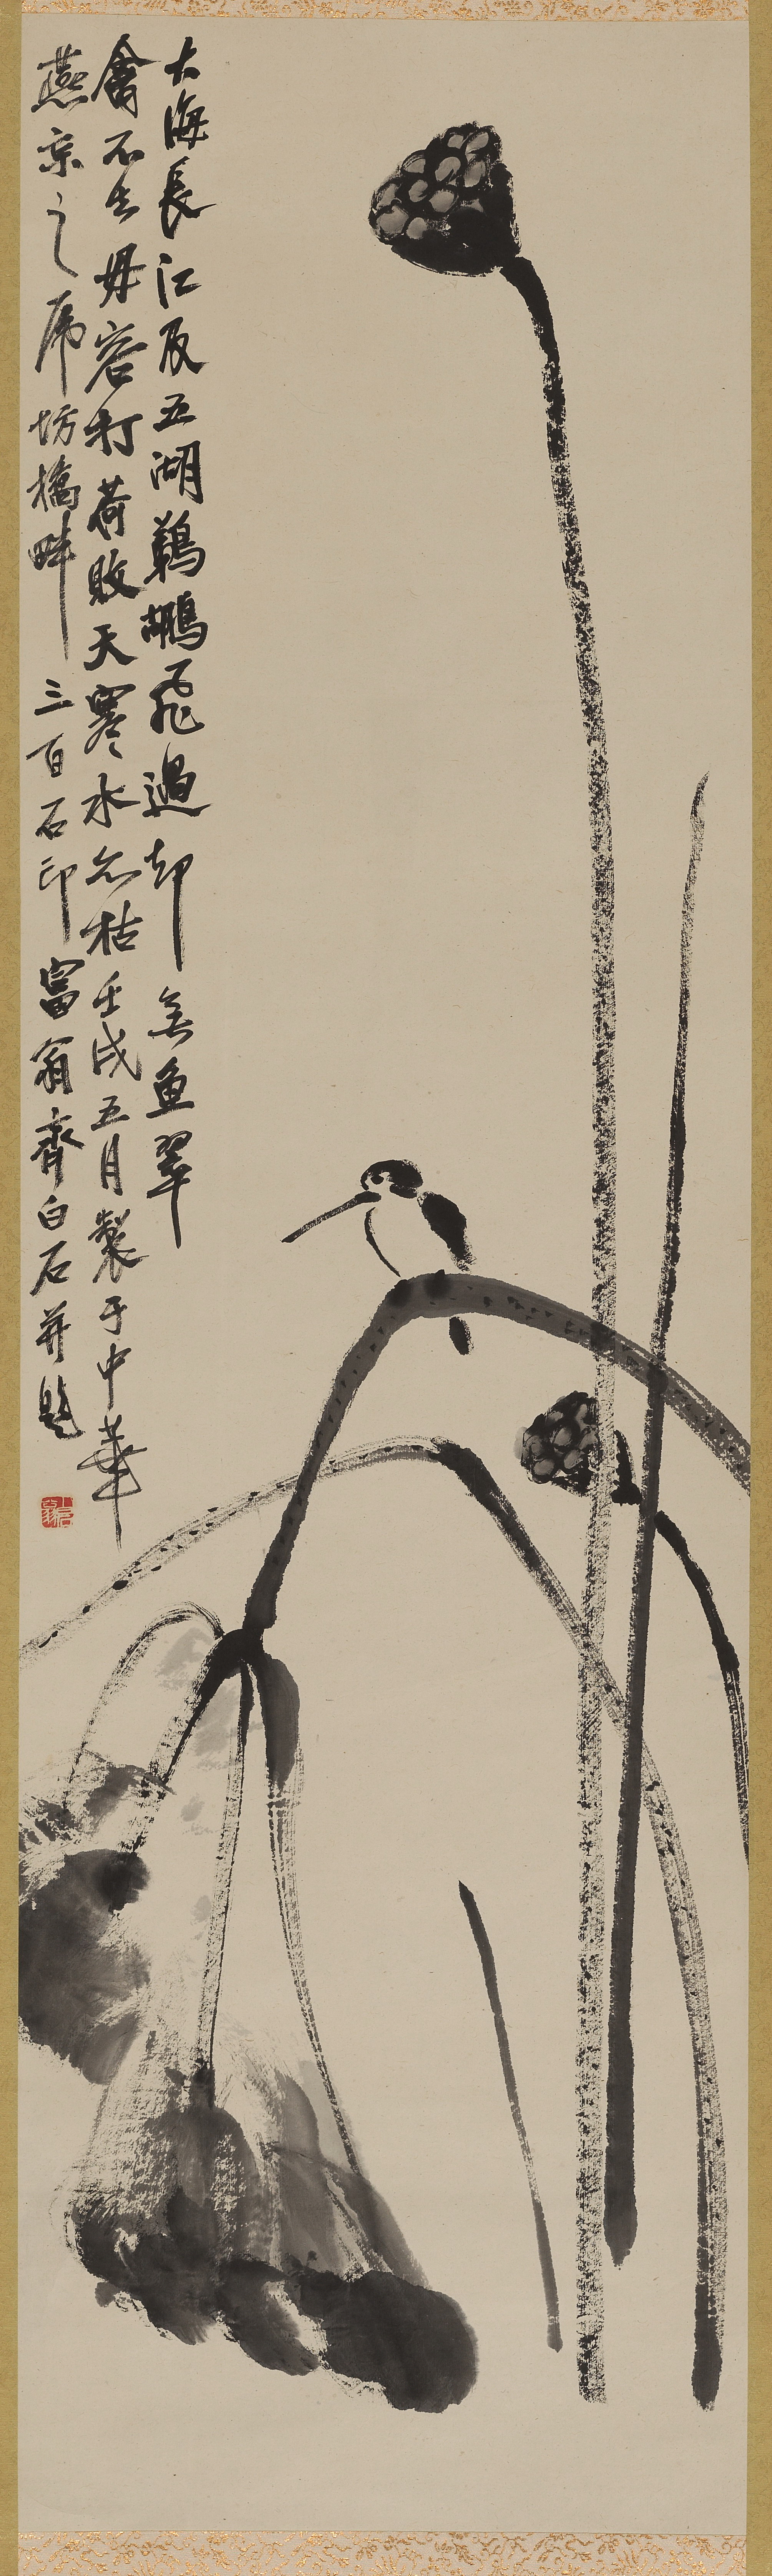 大海長江及五湖鵜鶘飛過却無魚翠
禽不去毋容打荷敗天寒水尒枯壬戌五月製于中華
燕京之虎坊橋畔三百石印富翁齊白石并題